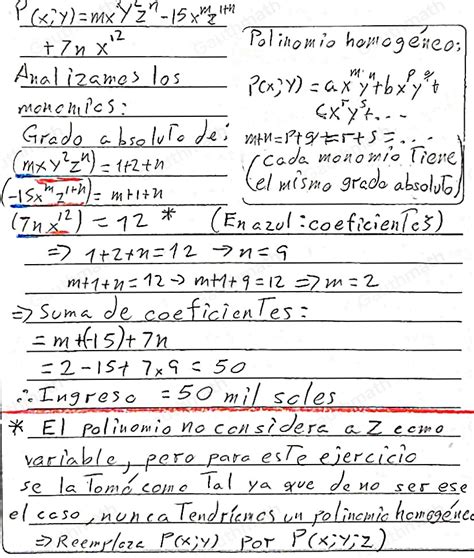 P(x;y)=mxy²zⁿ-15xᵐz¹⁺ⁿ
+7nx¹²
Analizamos los
monomios:
Grado absoluto de:
(mxy²zⁿ)=1+2+n
(-15xᵐz¹⁺ⁿ)=m+1+n
(7nx¹²)=12 *
Polinomio homogéneo:
P(x;y)=axᵐyⁿ+bxᵖy⁹+
cxʳyˢ+...
m+n=p+q=r+s=...
(cada monomio tiene
el mismo grado absoluto)
(En azul: coeficientes)
⇒ 1+2+n=12 → n=9
m+1+n=12 → m+1+9=12 ⇒ m=2
⇒ Suma de coeficientes:
=m+(-15)+7n
=2-15+7x9=50
∴ Ingreso =50 mil soles
* El polinomio no considera a z como
variable, pero para este ejercicio
se la tomó como tal ya que de no ser ese
el caso, nunca tendríamos un polinomio homogéneo
⇒ Reemplaza P(x;y) por P(x;y;z)